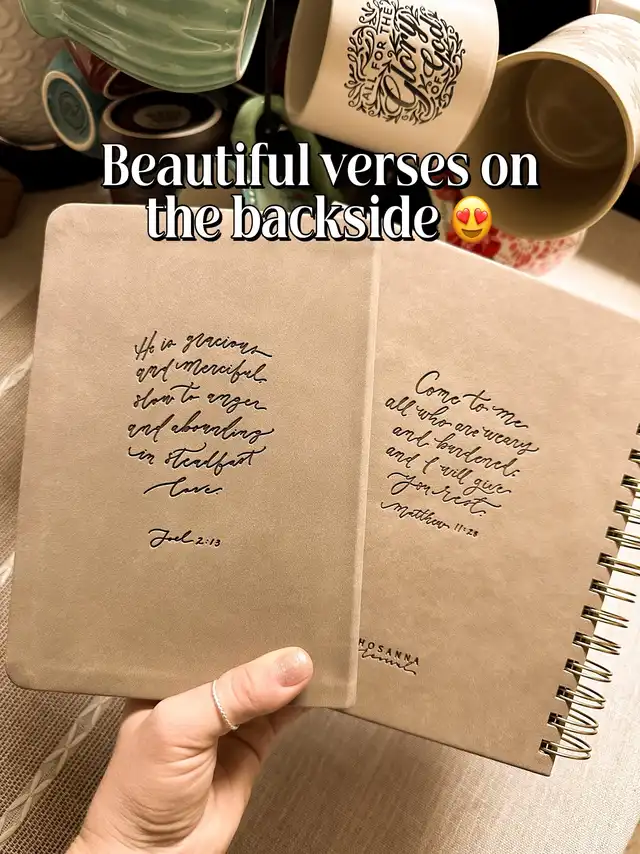 ALL FOR THE
Glory
OF God
Beautiful verses on
the backside 😍
He is gracious
and merciful,
slow to anger
and abounding
in steadfast
love.
Joel 2:13
Come to me
all who are weary
and burdened,
and I will give
you rest.
Matthew 11:28
HOSANNA
Revival